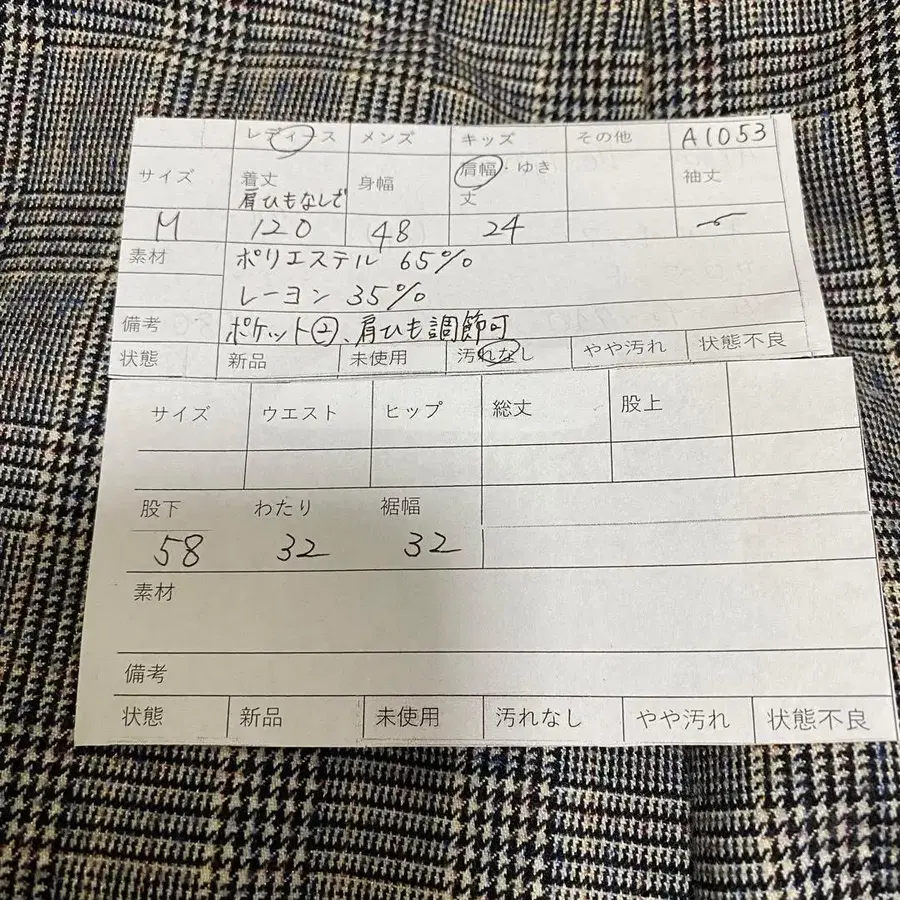 レディース メンズ キッズ その他 A1053
サイズ 着丈 身幅 肩幅・ゆき丈 袖丈
肩ひもなしで
M 120 48 24
素材 ポリエステル 65%
レーヨン 35%
備考 ポケット②、肩ひも調節可
状態 新品 未使用 汚れなし やや汚れ 状態不良
サイズ ウエスト ヒップ 総丈 股上
股下 わたり 裾幅
58 32 32
素材
備考
状態 新品 未使用 汚れなし やや汚れ 状態不良